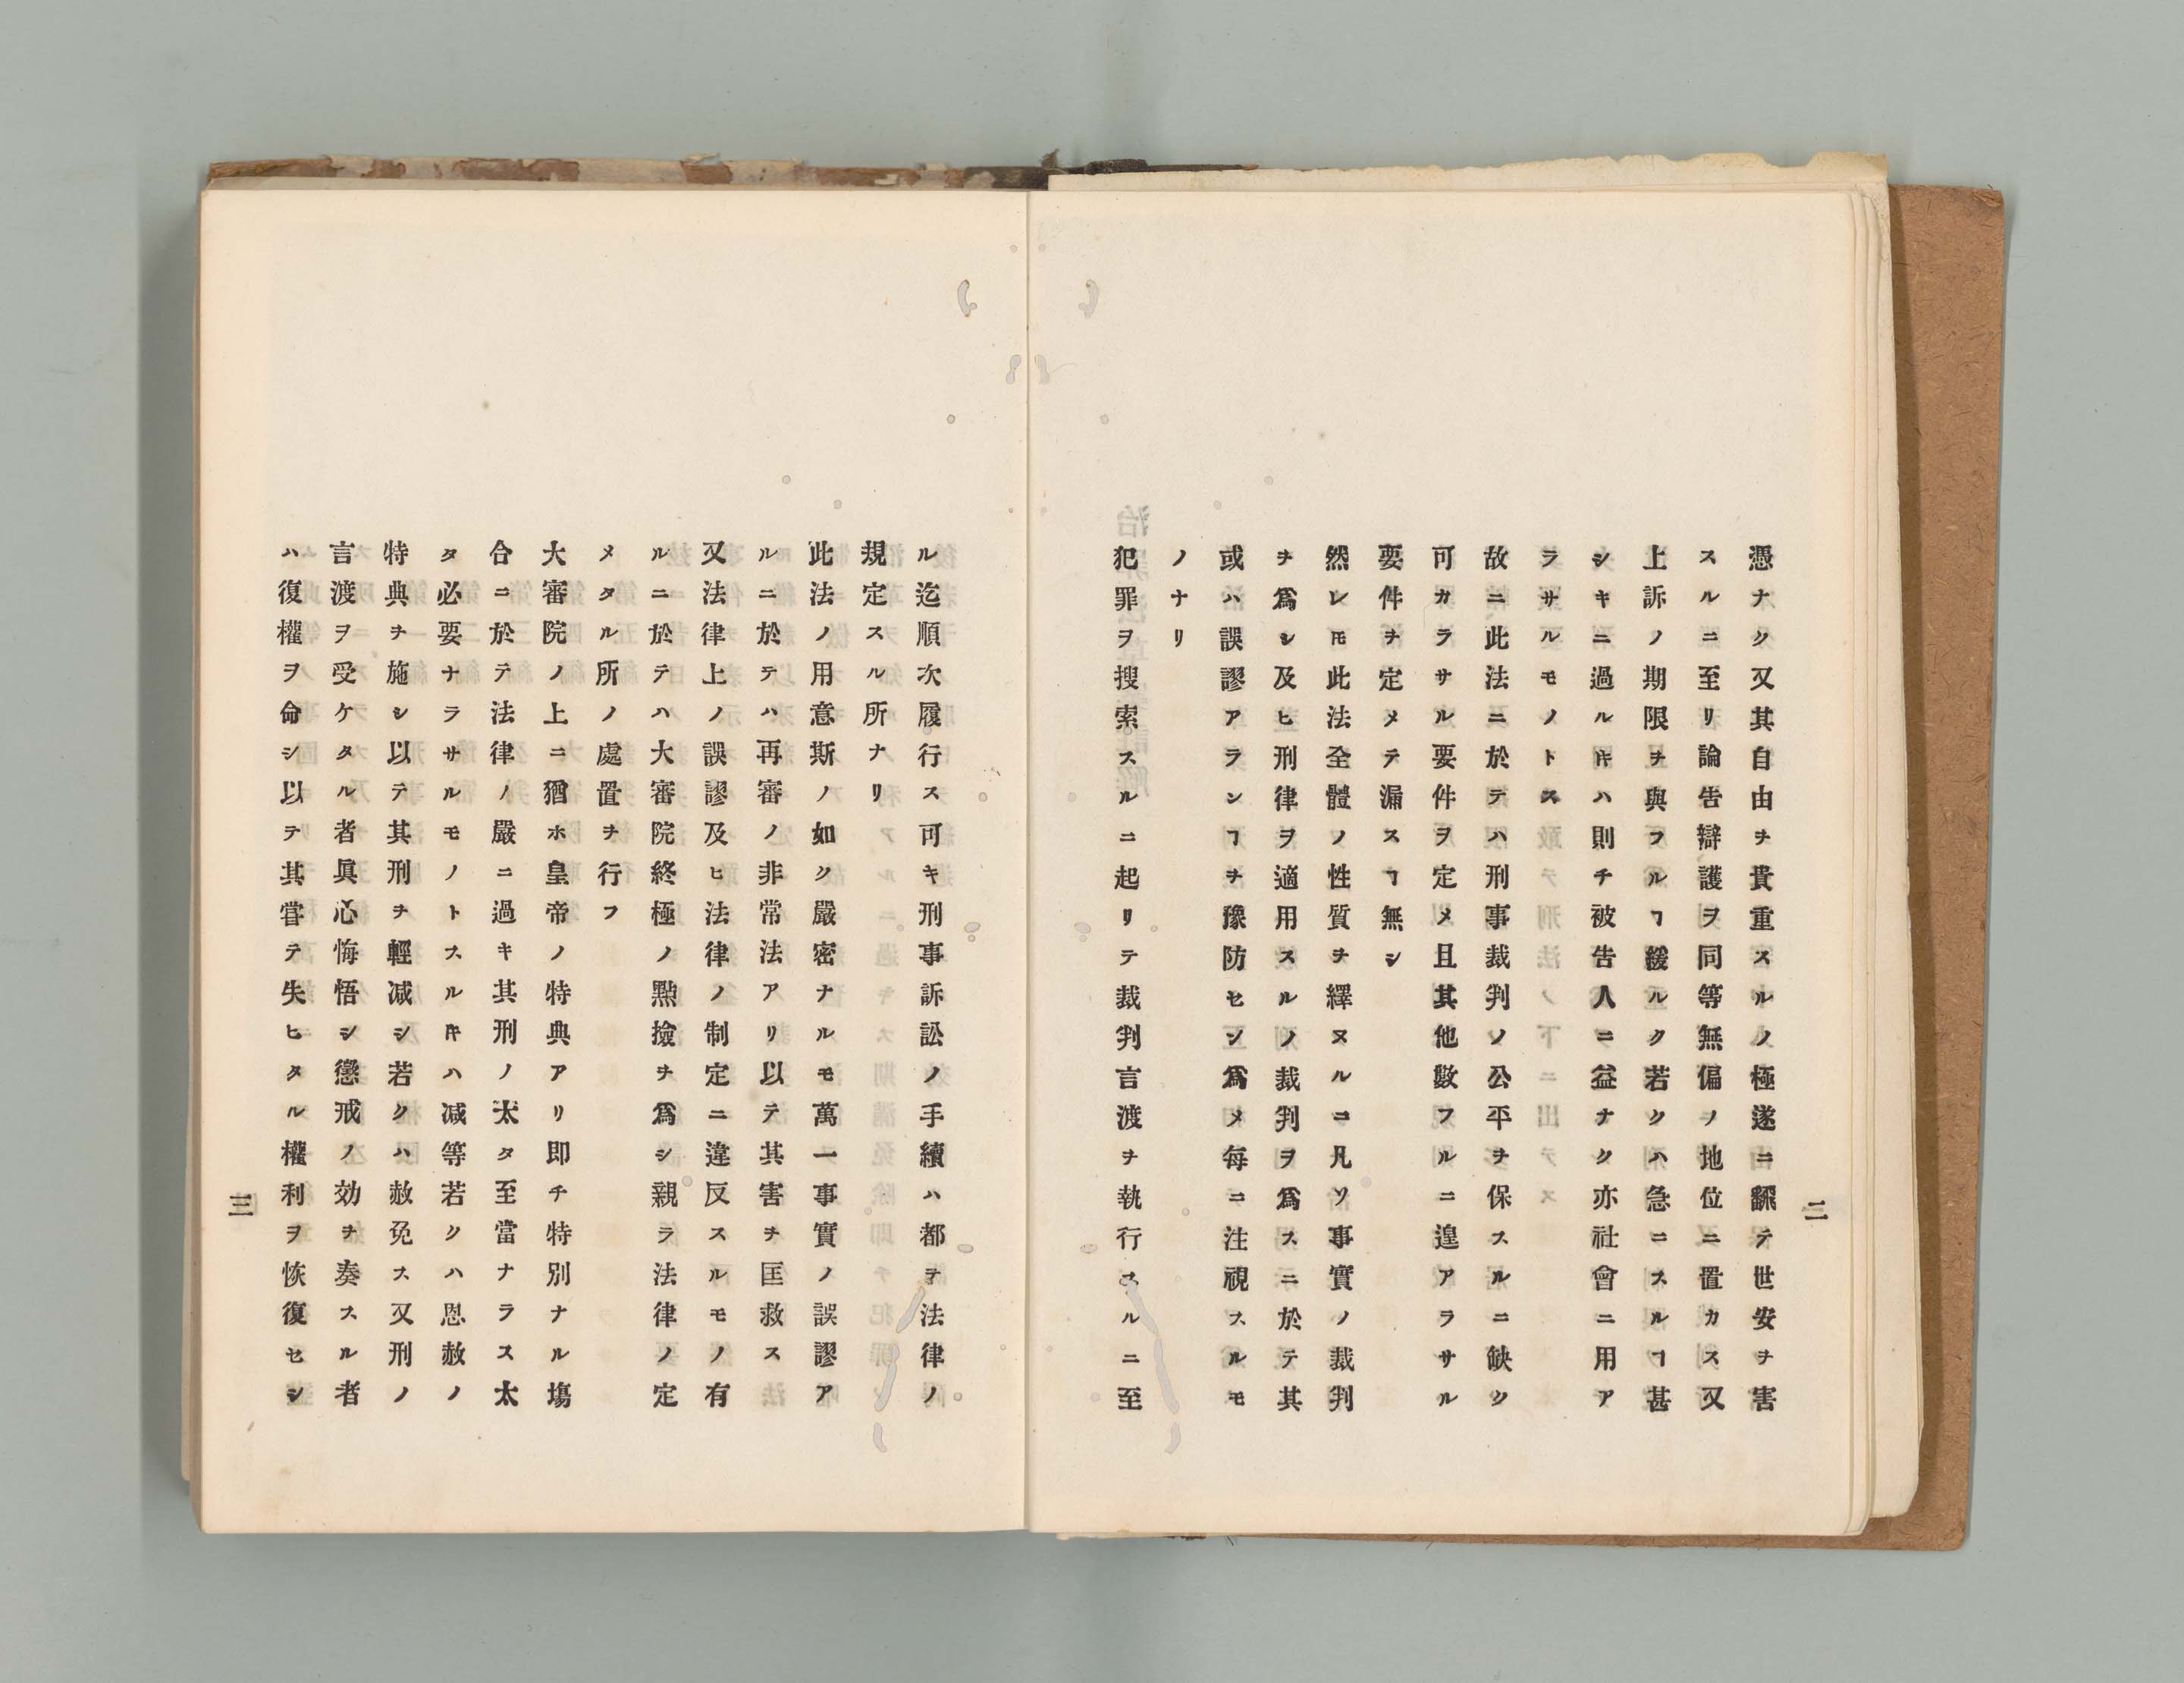 二
憑ナク又其自由ヲ貴重スルノ極遂ニ飜テ世安ヲ害
スルニ至リ論告辯護ヲ同等無偏ノ地位ニ置カス又
上訴ノ期限ヲ與フルヿ緩ルク若クハ急ニスルヿ甚
シキニ過ルキハ則チ被告人ニ益ナク亦社會ニ用ア
ラサルモノトス
故ニ此法ニ於テハ刑事裁判ノ公平ヲ保スルニ缺ク
可カラサル要件ヲ定メ且其他數フルニ遑アラサル
要件ヲ定メテ漏スヿ無シ
然レモ此法全體ノ性質ヲ繹ヌルニ凡ソ事實ノ裁判
ヲ爲シ及ヒ刑律ヲ適用スルノ裁判ヲ爲スニ於テ其
或ハ誤謬アランヿヲ豫防センヿ爲メ毎ニ注視スルモ
ノナリ
犯罪ヲ搜索スルニ起リテ裁判言渡ヲ執行スルニ至
ル迄順次履行ス可キ刑事訴訟ノ手續ハ都テ法律ノ
規定スル所ナリ
此法ノ用意斯ノ如ク嚴密ナルモ萬一事實ノ誤謬ア
ルニ於テハ再審ノ非常法アリ以テ其害ヲ匡救ス
又法律上ノ誤謬及ヒ法律ノ制定ニ違反スルモノ有
ルニ於テハ大審院終極ノ點撿ヲ爲シ親ラ法律ノ定
メタル所ノ處置ヲ行フ
大審院ノ上ニ猶ホ皇帝ノ特典アリ即チ特別ナル塲
合ニ於テ法律ノ嚴ニ過キ其刑ノ太タ至當ナラス太
タ必要ナラサルモノトスルキハ减等若クハ恩赦ノ
特典ヲ施シ以テ其刑ヲ輕减シ若クハ赦免ス又刑ノ
言渡ヲ受ケタル者眞心悔悟シ懲戒ノ効ヲ奏スル者
ハ復權ヲ命シ以テ其甞テ失ヒタル權利ヲ恢復セシ
三